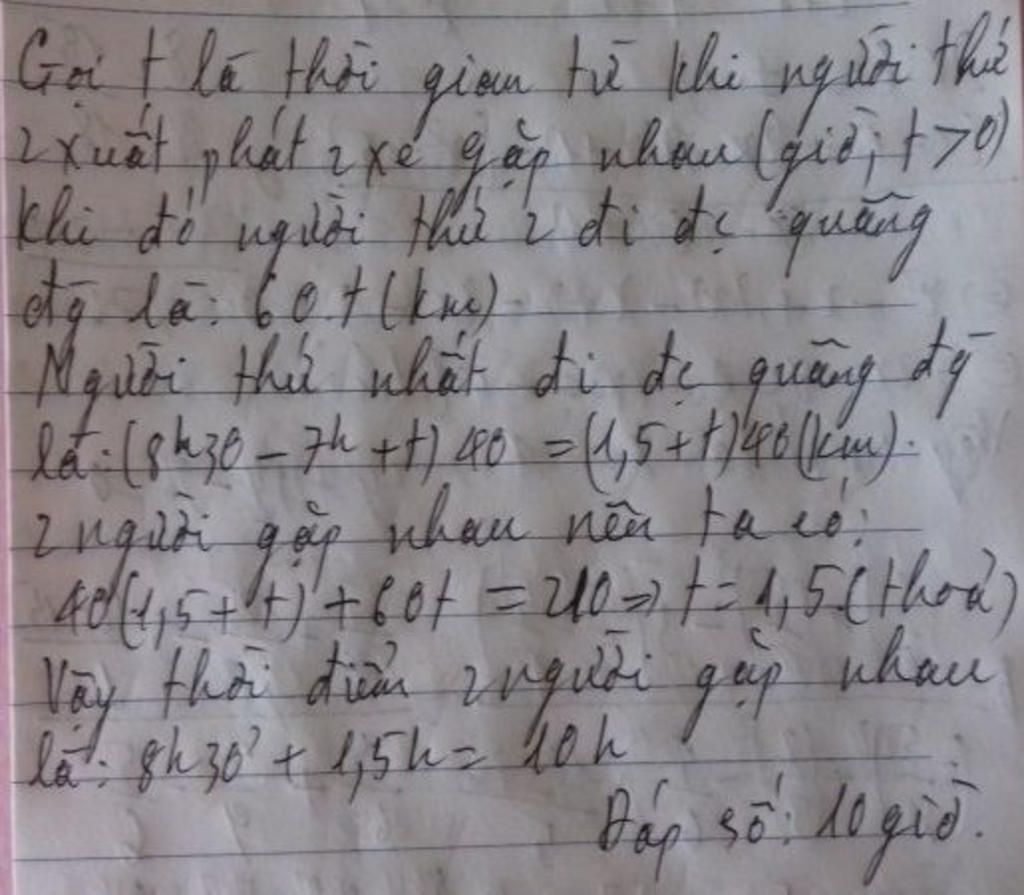 Gọi t là thời gian từ khi người thứ
2 xuất phát 2 xe gặp nhau (giờ; t > 0)
Khi đó người thứ 2 đi đc quãng
đg là: 60t (km)
Người thứ nhất đi đc quãng đg
là: (8h30 - 7h + t) 40 = (1,5 + t) 40 (km).
2 người gặp nhau nên ta có:
40(1,5 + t) + 60t = 210 => t = 1,5 (thoả)
Vậy thời điểm 2 người gặp nhau
là: 8h30' + 1,5h = 10h
Đáp số: 10 giờ.